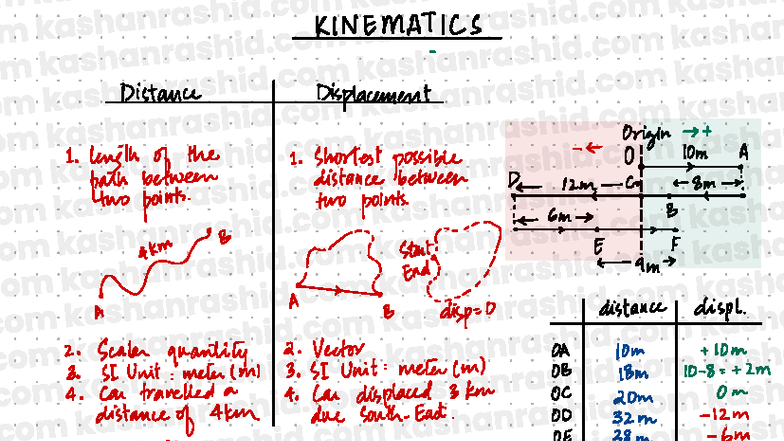 KINEMATICS
Distance
1. length of the
path between
two points.
4km
A
B
2. Scalar quantity
3. SI Unit : meter (m)
4. Car travelled a
distance of 4km
Displacement
1. Shortest possible
distance between
two points.
A
B
Start
End
disp=0
2. Vector
3. SI Unit : meter (m)
4. Car displaced 3 km
due South-East.
Origin → +
- ←
O 10m A
D 12m C 8m
6m B
E F
9m
distance displ.
OA 10m +10m
OB 18m 10-8 = +2m
OC 20m 0m
OD 32m -12m
OE 38m -6m
kashanrashid.com